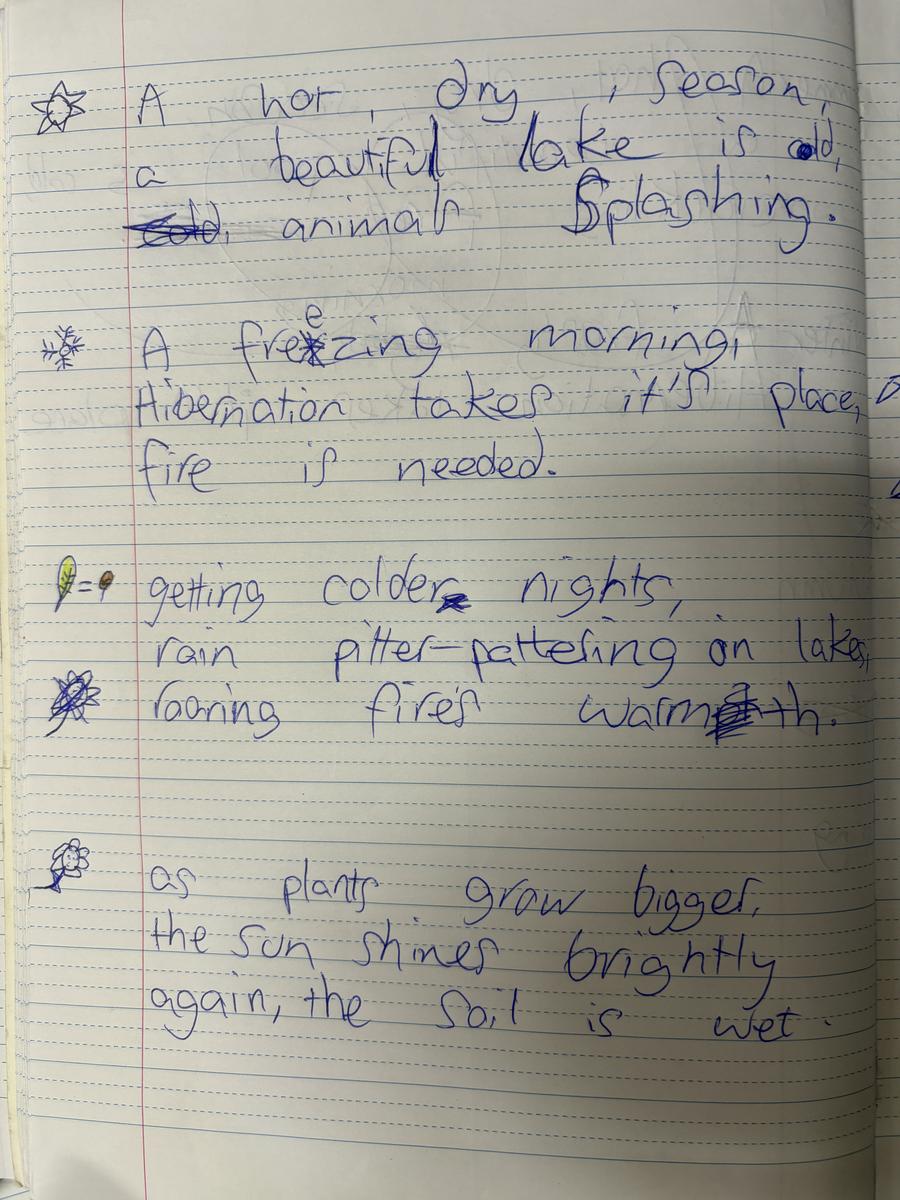 A hot, dry, season,
a beautiful lake is cold,
animals Splashing.
A freezing morning,
Hibernation takes it's place,
fire is needed.
getting colder nights,
rain pitter-pattering on lakes,
roaring fires warmth.
as plants grow bigger,
the sun shines brightly
again, the soil is wet.